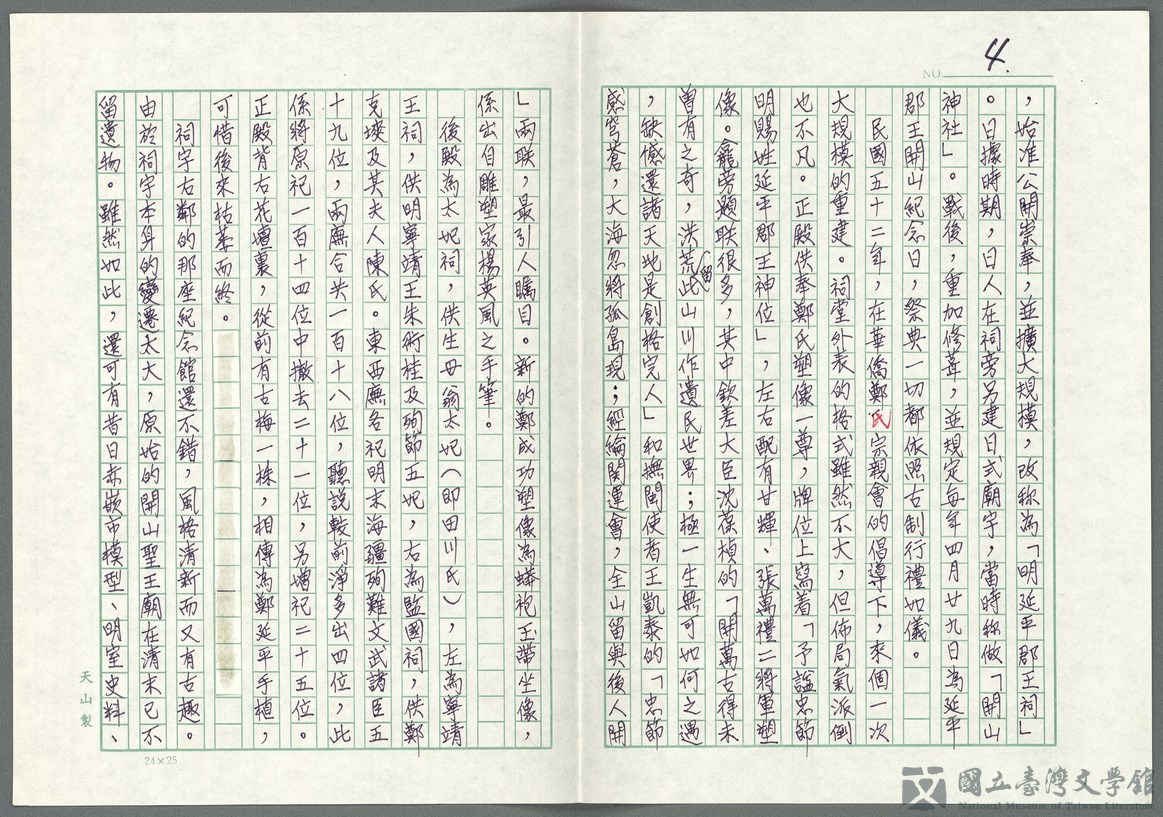 4.
NO.
，始准公開崇奉，並擴大規模，改称為「明延平郡王祠」
。日據時期，日人在祠旁另建日式廟宇，當時称做「開山
神社」。戰後，重加修葺，並規定每年四月廿九日為延平
郡王開山紀念日，祭典一切都依照古制行禮如儀。
民國五十二年，在華僑鄭氏宗親會的倡導下，來個一次
大規模的重建。祠堂外表的格式雖然不大，但佈局氣派倒
也不凡。正殿供奉鄭氏塑像一尊，牌位上寫着「予謚忠節
明賜姓延平郡王神位」，左右配有甘輝、張萬禮二將軍塑
像。龕旁題联很多，其中欽差大臣沈葆楨的「開萬古得未
曾有之奇，洪荒留此山川作遺民世界；極一生無可如何之遇
，缺憾還諸天地是創格完人」和撫閩使者王凱泰的「忠節
感穹蒼，大海忽將孤島現；經綸関運會，全山留與後人開
」兩联，最引人矚目。新的鄭成功塑像為蟒袍玉帶坐像，
係出自雕塑家楊英風之手筆。
後殿為太妃祠，供生母翁太妃（即田川氏），左為寧靖
王祠，供明寧靖王朱術桂及殉節五妃，右為監國祠，供鄭
克𡒉及其夫人陳氏。東西廡各祀明末海疆殉難文武諸臣五
十九位，兩廡合共一百十八位，聽說較前淨多出四位，此
係將原祀一百十四位中撤去二十一位，另增祀二十五位。
正殿背右花壇裏，從前有古梅一株，相傳為鄭延平手植，
可惜後來枯萎而終。
祠宇右鄰的那座紀念館還不錯，風格清新而又有古趣。
由於祠宇本身的變遷太大，原始的開山聖王廟在清末已不
留遺物。雖然如此，還可有昔日赤嵌市模型、明室史料、
天山製
24×25
國立臺灣文學館
National Museum of Taiwan Literature